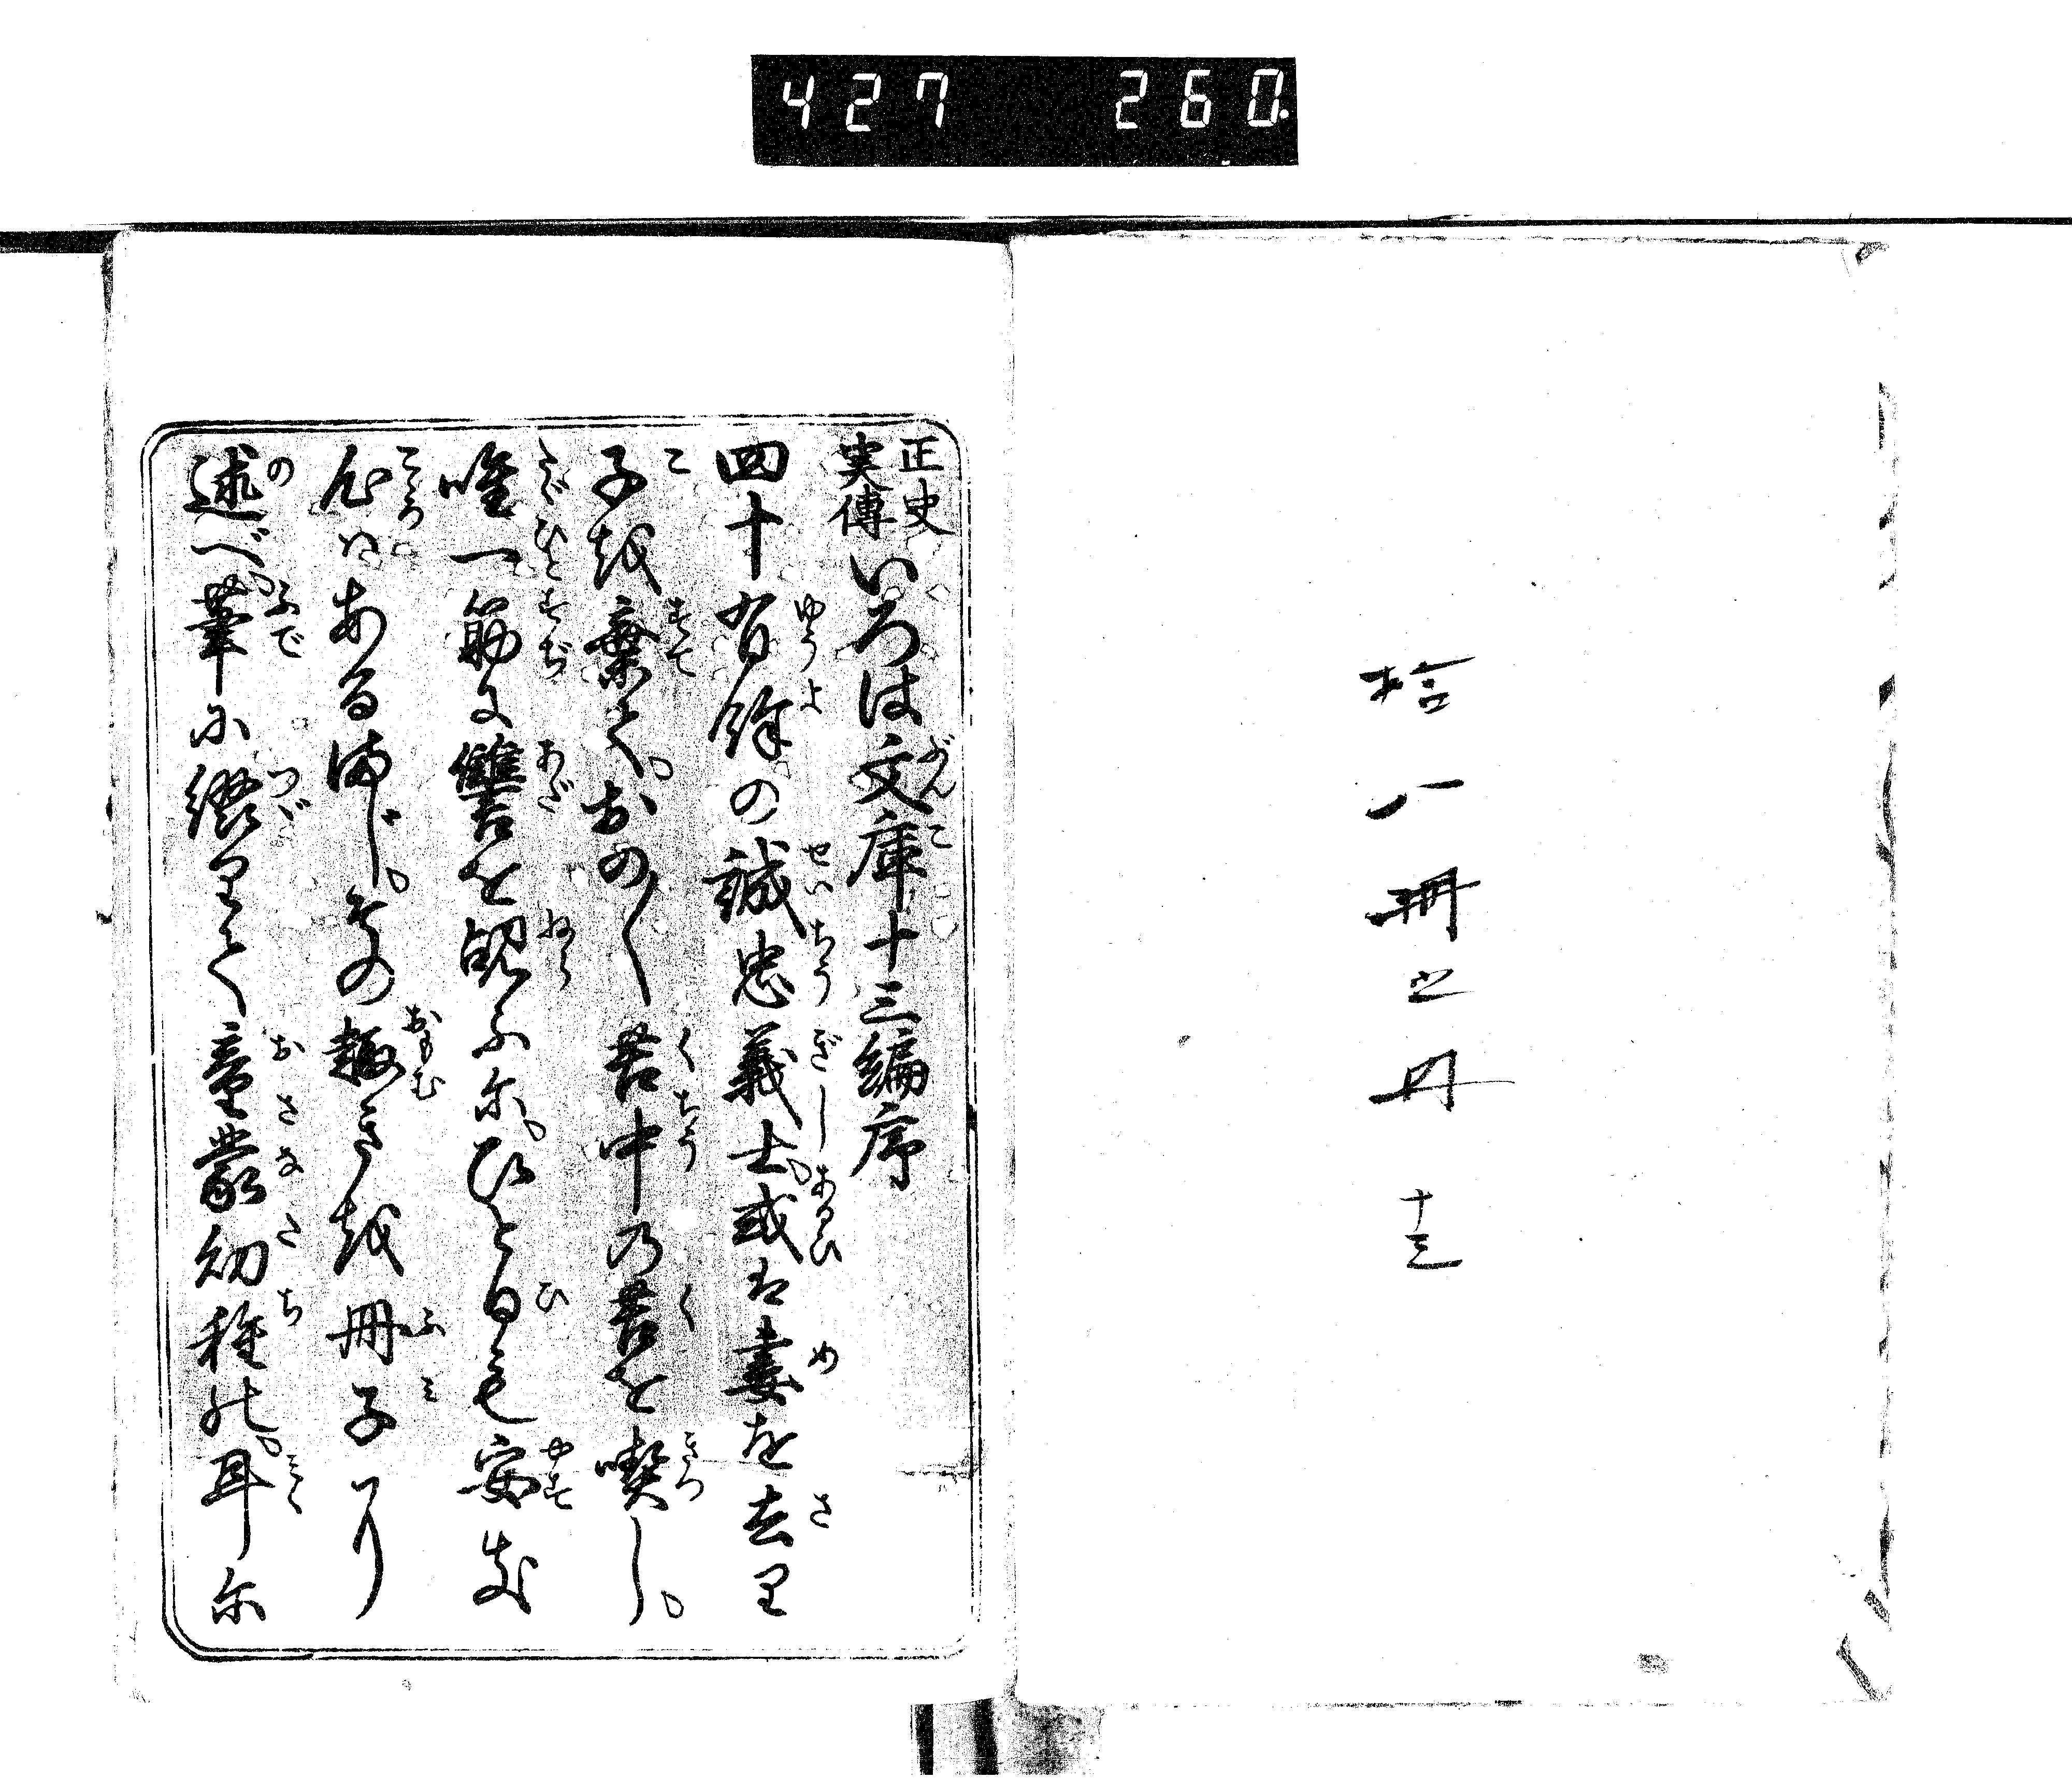 427 260.
拾八冊之内 十三
正史
実傳
いろは文庫十三編序
四十有餘の誠忠義士。或は妻を去り
子を棄て。おの〱苦中の苦を喫し。
唯一筋に讐を覘ふに。ひと日も安き
心はあるまじ。その趣きを冊子につゞり
述べ。筆に綴りて童蒙幼稚の。耳に